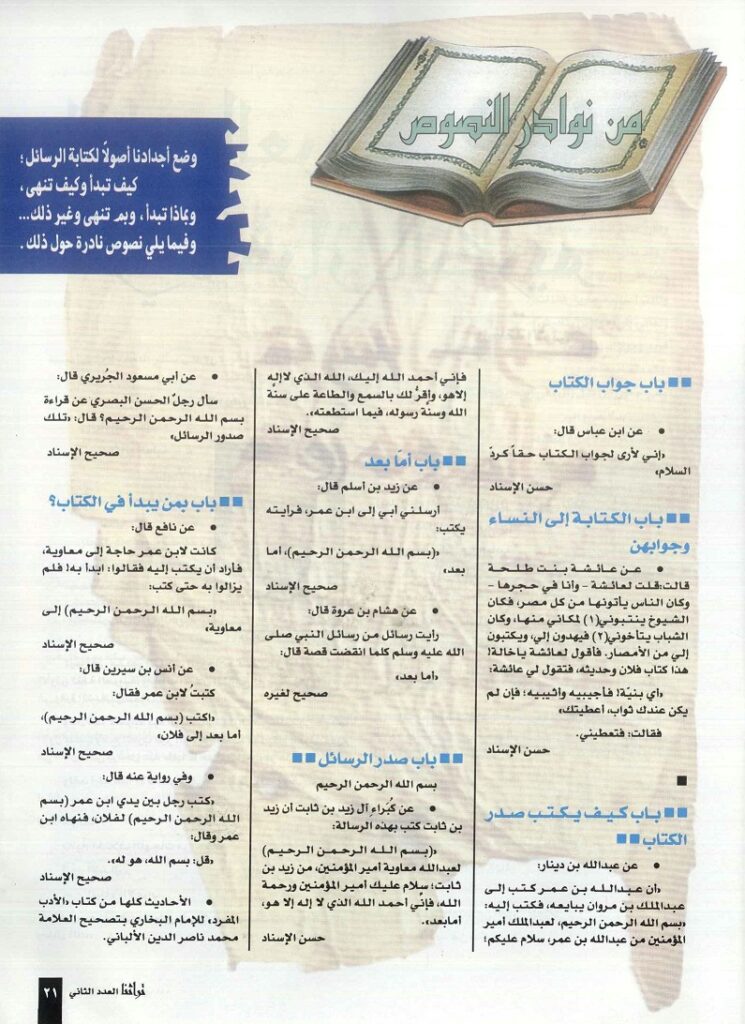 من نوادر النصوص
وضع أجدادنا أصولاً لكتابة الرسائل؛
كيف تبدأ وكيف تنهى،
وبماذا تبدأ، وبم تنهى وغير ذلك...
وفيما يلي نصوص نادرة حول ذلك.
باب جواب الكتاب
● عن ابن عباس قال:
«إني لأرى لجواب الكتاب حقاً كردّ
السلام»
حسن الإسناد
باب الكتابة إلى النساء
وجوابهن
● عن عائشة بنت طلحة
قالت: قلت لعائشة - وأنا في حجرها -
وكان الناس يأتونها من كل مصر، فكان
الشيوخ ينتبوني(١) لمكاني منها، وكان
الشباب يتأخوني(٢) فيهدون إلي، ويكتبون
إلي من الأمصار. فأقول لعائشة ياخالة!
هذا كتاب فلان وحديثه، فتقول لي عائشة:
«أي بنيّة! فأجيبيه وأثيبيه؛ فإن لم
يكن عندك ثواب، أعطيتك»
فقالت: فتعطيني.
حسن الإسناد
باب كيف يكتب صدر
الكتاب
● عن عبدالله بن دينار:
«أن عبدالله بن عمر كتب إلى
عبدالملك بن مروان يبايعه، فكتب إليه:
«بسم الله الرحمن الرحيم، لعبدالملك أمير
المؤمنين من عبدالله بن عمر، سلام عليكم؛
فإني أحمد الله إليك، الله الذي لاإله
إلاهو، وأقرُّ لك بالسمع والطاعة على سنة
الله وسنة رسوله، فيما استطعته».
صحيح الإسناد
باب أمّا بعد
● عن زيد بن أسلم قال:
أرسلني أبي إلى ابن عمر، فرأيته
يكتب:
«(بسم الله الرحمن الرحيم)، أما
بعد»
صحيح الإسناد
● عن هشام بن عروة قال:
رأيت رسائل من رسائل النبي صلى
الله عليه وسلم كلما انقضت قصة قال:
«أما بعد»
صحيح لغيره
باب صدر الرسائل
بسم الله الرحمن الرحيم
● عن كُبَراءِ آل زيد بن ثابت أن زيد
بن ثابت كتب بهذه الرسالة:
«(بسم الله الرحمن الرحيم)
لعبدالله معاوية أمير المؤمنين، من زيد بن
ثابت؛ سلام عليك أمير المؤمنين ورحمة
الله، فإني أحمد الله الذي لا إله إلا هو،
أمابعد».
حسن الإسناد
● عن أبي مسعود الجُريري قال:
سأل رجلٌ الحسن البصري عن قراءة
بسم الله الرحمن الرحيم؟ قال: «تلك
صدور الرسائل»
صحيح الإسناد
باب بمن يبدأ في الكتاب؟
● عن نافع قال:
كانت لابن عمر حاجة إلى معاوية،
فأراد أن يكتب إليه فقالوا: ابدأ به! فلم
يزالوا به حتى كتب:
«بسم الله الرحمن الرحيم) إلى
معاوية»
صحيح الإسناد
● عن أنس بن سيرين قال:
كتبتُ لابن عمر فقال:
«اكتب (بسم الله الرحمن الرحيم)،
أما بعد إلى فلان»
صحيح الإسناد
● وفي رواية عنه قال:
«كتب رجل بين يدي ابن عمر (بسم
الله الرحمن الرحيم) لفلان، فنهاه ابن
عمر وقال:
«قل: بسم الله، هو له».
صحيح الإسناد
● الأحاديث كلها من كتاب «الأدب
المفرد» للإمام البخاري بتصحيح العلامة
محمد ناصر الدين الألباني.
العدد الثاني
٢١